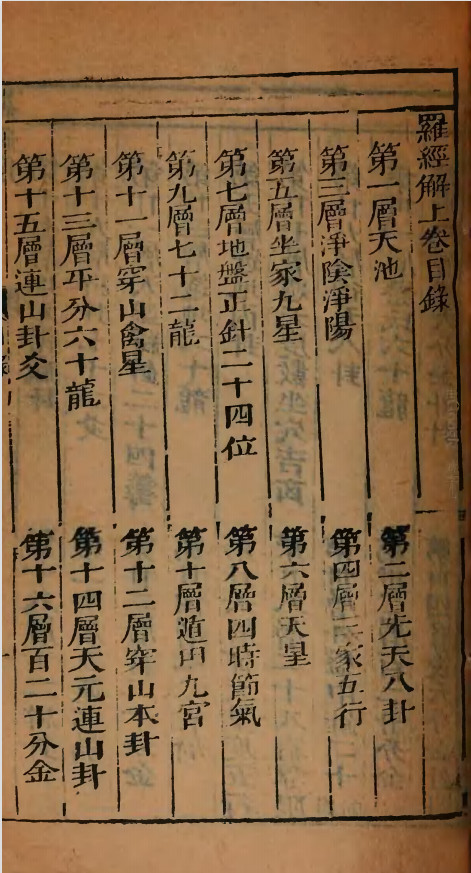 羅經解上卷目錄
第一層天池
第二層先天八卦
第三層淨陰淨陽
第四層二家五行
第五層坐家九星
第六層天星
第七層地盤正針二十四位
第八層四時節氣
第九層七十二龍
第十層遁甲九宮
第十一層穿山禽星
第十二層穿山本卦
第十三層平分六十龍
第十四層天元連山卦
第十五層連山卦爻
第十六層百二十分金